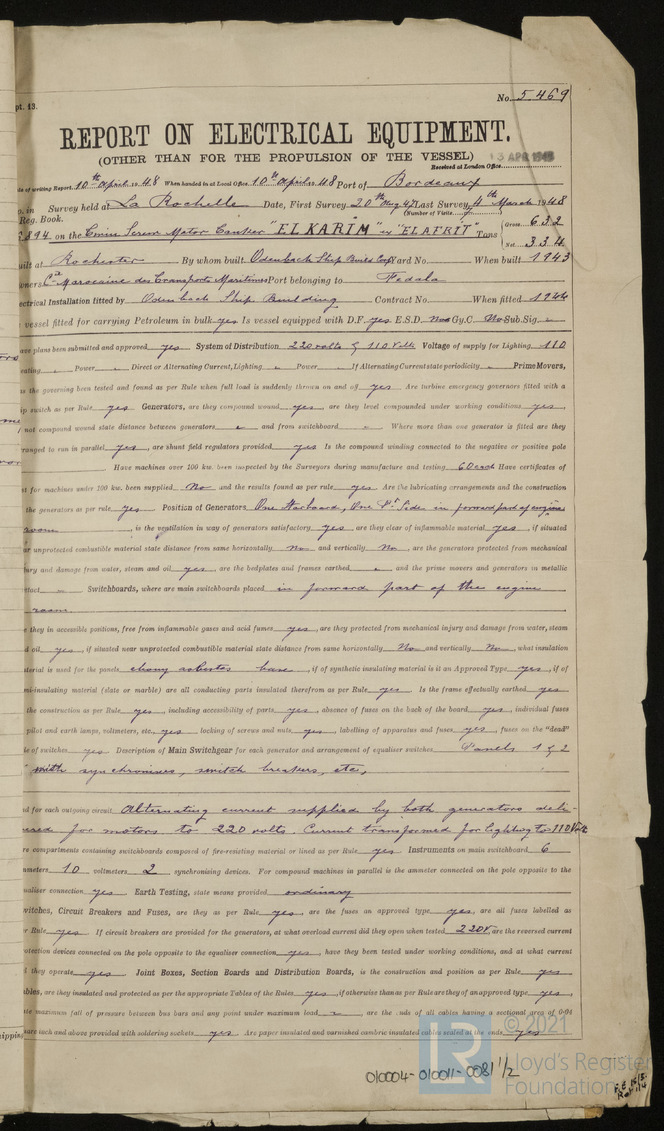 pt. 13.
No. 5469
REPORT ON ELECTRICAL EQUIPMENT.
(OTHER THAN FOR THE PROPULSION OF THE VESSEL)
Received at London Office
3 APR 1948
of writing Report. 10th April 1948 When handed in at Local Office. 10th April 1948 Port of Bordeaux
in Survey held at La Rochelle Date, First Survey 20th Aug 47 Last Survey 4th March 1948
Reg. Book. (Number of Visits
894 on the Twin Screw Motor Tanker "EL KARIM" ex "EL AFRIT" Tons { Gross 632
Net 334
uilt at Rochester By whom built Odenbach Ship Build Corp Yard No. When built 1943
wners Cie Marocaine des Transports Maritimes Port belonging to Fedala
ectrical Installation fitted by Odenbach Ship Building Contract No. When fitted 1944
vessel fitted for carrying Petroleum in bulk yes Is vessel equipped with D.F. yes E.S.D. No Gy.C. No Sub.Sig.
ave plans been submitted and approved yes System of Distribution 220 volts & 110 Volts Voltage of supply for Lighting 110
eating Power Direct or Alternating Current, Lighting Power If Alternating Current state periodicity Prime Movers,
s the governing been tested and found as per Rule when full load is suddenly thrown on and off yes Are turbine emergency governors fitted with a
ip switch as per Rule yes Generators, are they compound wound yes, are they level compounded under working conditions yes,
not compound wound state distance between generators and from switchboard Where more than one generator is fitted are they
ranged to run in parallel yes, are shunt field regulators provided yes Is the compound winding connected to the negative or positive pole
Have machines over 100 kw. been inspected by the Surveyors during manufacture and testing 60 each Have certificates of
st for machines under 100 kw. been supplied No and the results found as per rule yes Are the lubricating arrangements and the construction
the generators as per rule yes Position of Generators One Starboard, One Pt Side in forward part of engine
room, is the ventilation in way of generators satisfactory yes, are they clear of inflammable material yes, if situated
ar unprotected combustible material state distance from same horizontally No and vertically No, are the generators protected from mechanical
jury and damage from water, steam and oil yes, are the bedplates and frames earthed and the prime movers and generators in metallic
tact Switchboards, where are main switchboards placed in forward part of the engine
room
e they in accessible positions, free from inflammable gases and acid fumes yes, are they protected from mechanical injury and damage from water, steam
d oil yes, if situated near unprotected combustible material state distance from same horizontally No and vertically No, what insulation
aterial is used for the panels ebony asbestos base, if of synthetic insulating material is it an Approved Type yes, if of
mi-insulating material (slate or marble) are all conducting parts insulated therefrom as per Rule yes Is the frame effectually earthed yes
the construction as per Rule yes, including accessibility of parts yes, absence of fuses on the back of the board yes, individual fuses
pilot and earth lamps, voltmeters, etc. yes locking of screws and nuts yes, labelling of apparatus and fuses yes, fuses on the "dead"
e of switches yes Description of Main Switchgear for each generator and arrangement of equaliser switches Panels 1 & 2
with synchronises, switch breakers, etc,
d for each outgoing circuit Alternating current supplied by both generators deli-
ered for motors to 220 volts. Current transformed for lighting to 110 Volts
re compartments containing switchboards composed of fire-resisting material or lined as per Rule yes Instruments on main switchboard 6
mmeters 10 voltmeters 2 synchronising devices. For compound machines in parallel is the ammeter connected on the pole opposite to the
ualiser connection yes Earth Testing, state means provided ordinary
witches, Circuit Breakers and Fuses, are they as per Rule yes, are the fuses an approved type yes, are all fuses labelled as
r Rule yes If circuit breakers are provided for the generators, at what overload current did they open when tested 220V, are the reversed current
otection devices connected on the pole opposite to the equaliser connection yes, have they been tested under working conditions, and at what current
d they operate yes Joint Boxes, Section Boards and Distribution Boards, is the construction and position as per Rule yes
ables, are they insulated and protected as per the appropriate Tables of the Rules yes, if otherwise than as per Rule are they of an approved type yes,
te maximum fall of pressure between bus bars and any point under maximum load, are the ends of all cables having a sectional area of 0·04
uare inch and above provided with soldering sockets yes Are paper insulated and varnished cambric insulated cables sealed at the ends yes
© 2021
LR
Lloyd's Register
Foundation
010004-010011-0081 1/2